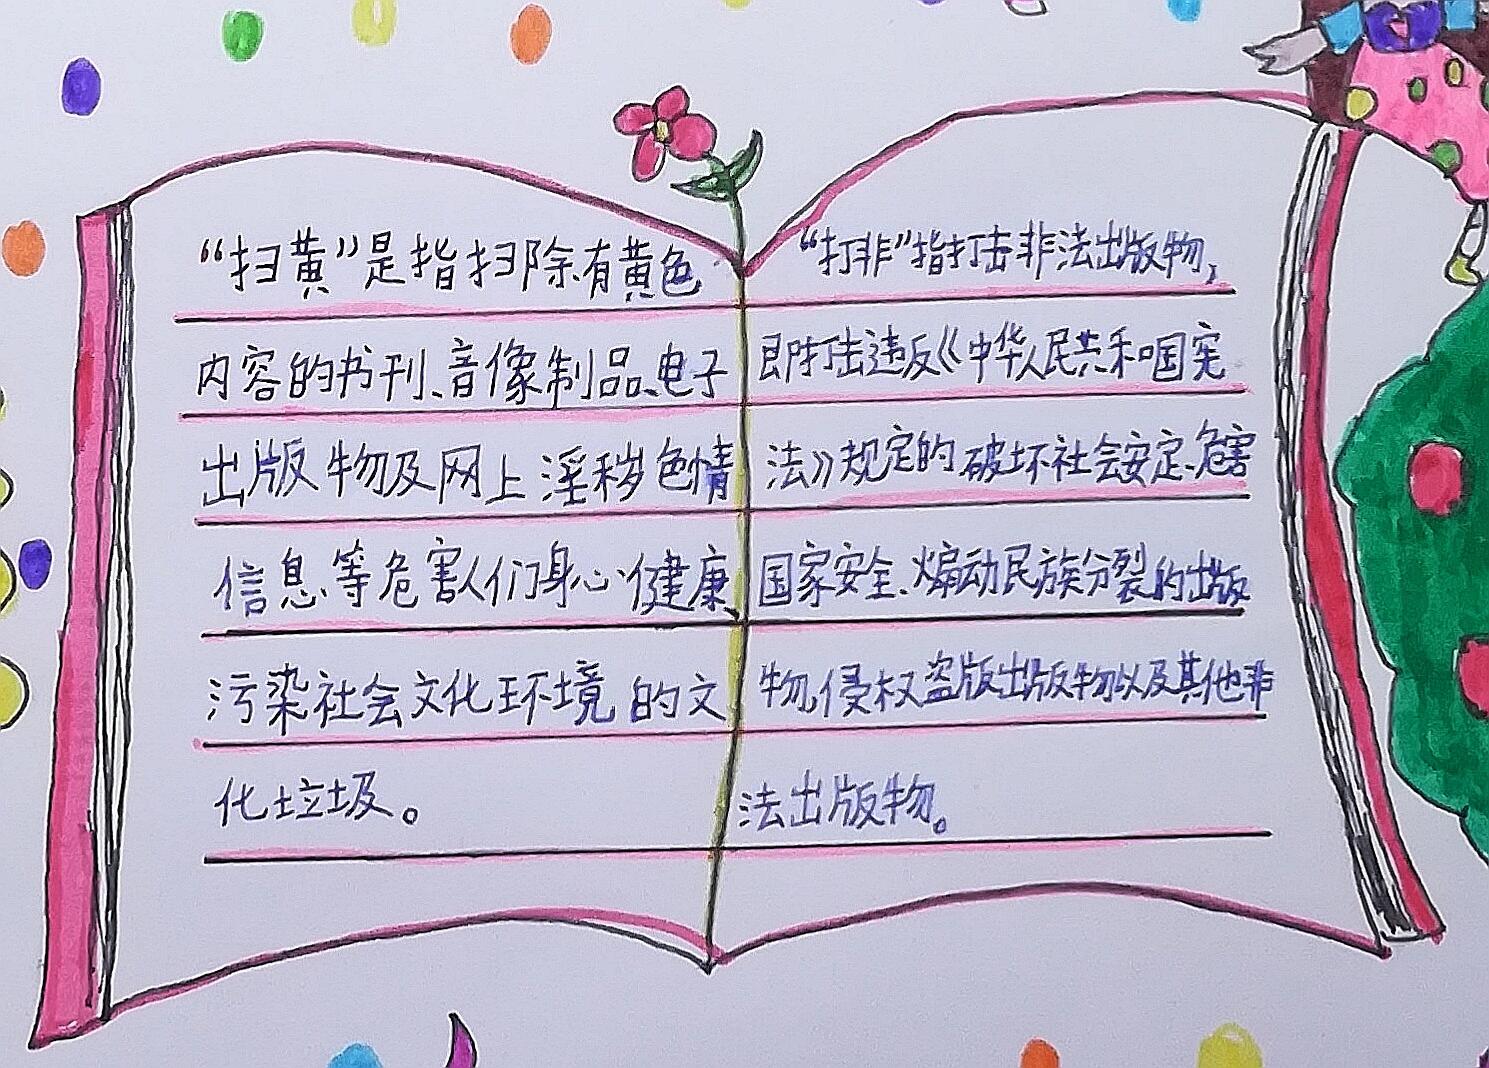 “扫黄”是指扫除有黄色
内容的书刊、音像制品、电子
出版物及网上淫秽色情
信息等危害人们身心健康、
污染社会文化环境的文
化垃圾。
“打非”指打击非法出版物,
即打击违反《中华人民共和国宪
法》规定的破坏社会安定、危害
国家安全、煽动民族分裂的出版
物,侵权盗版出版物以及其他非
法出版物。